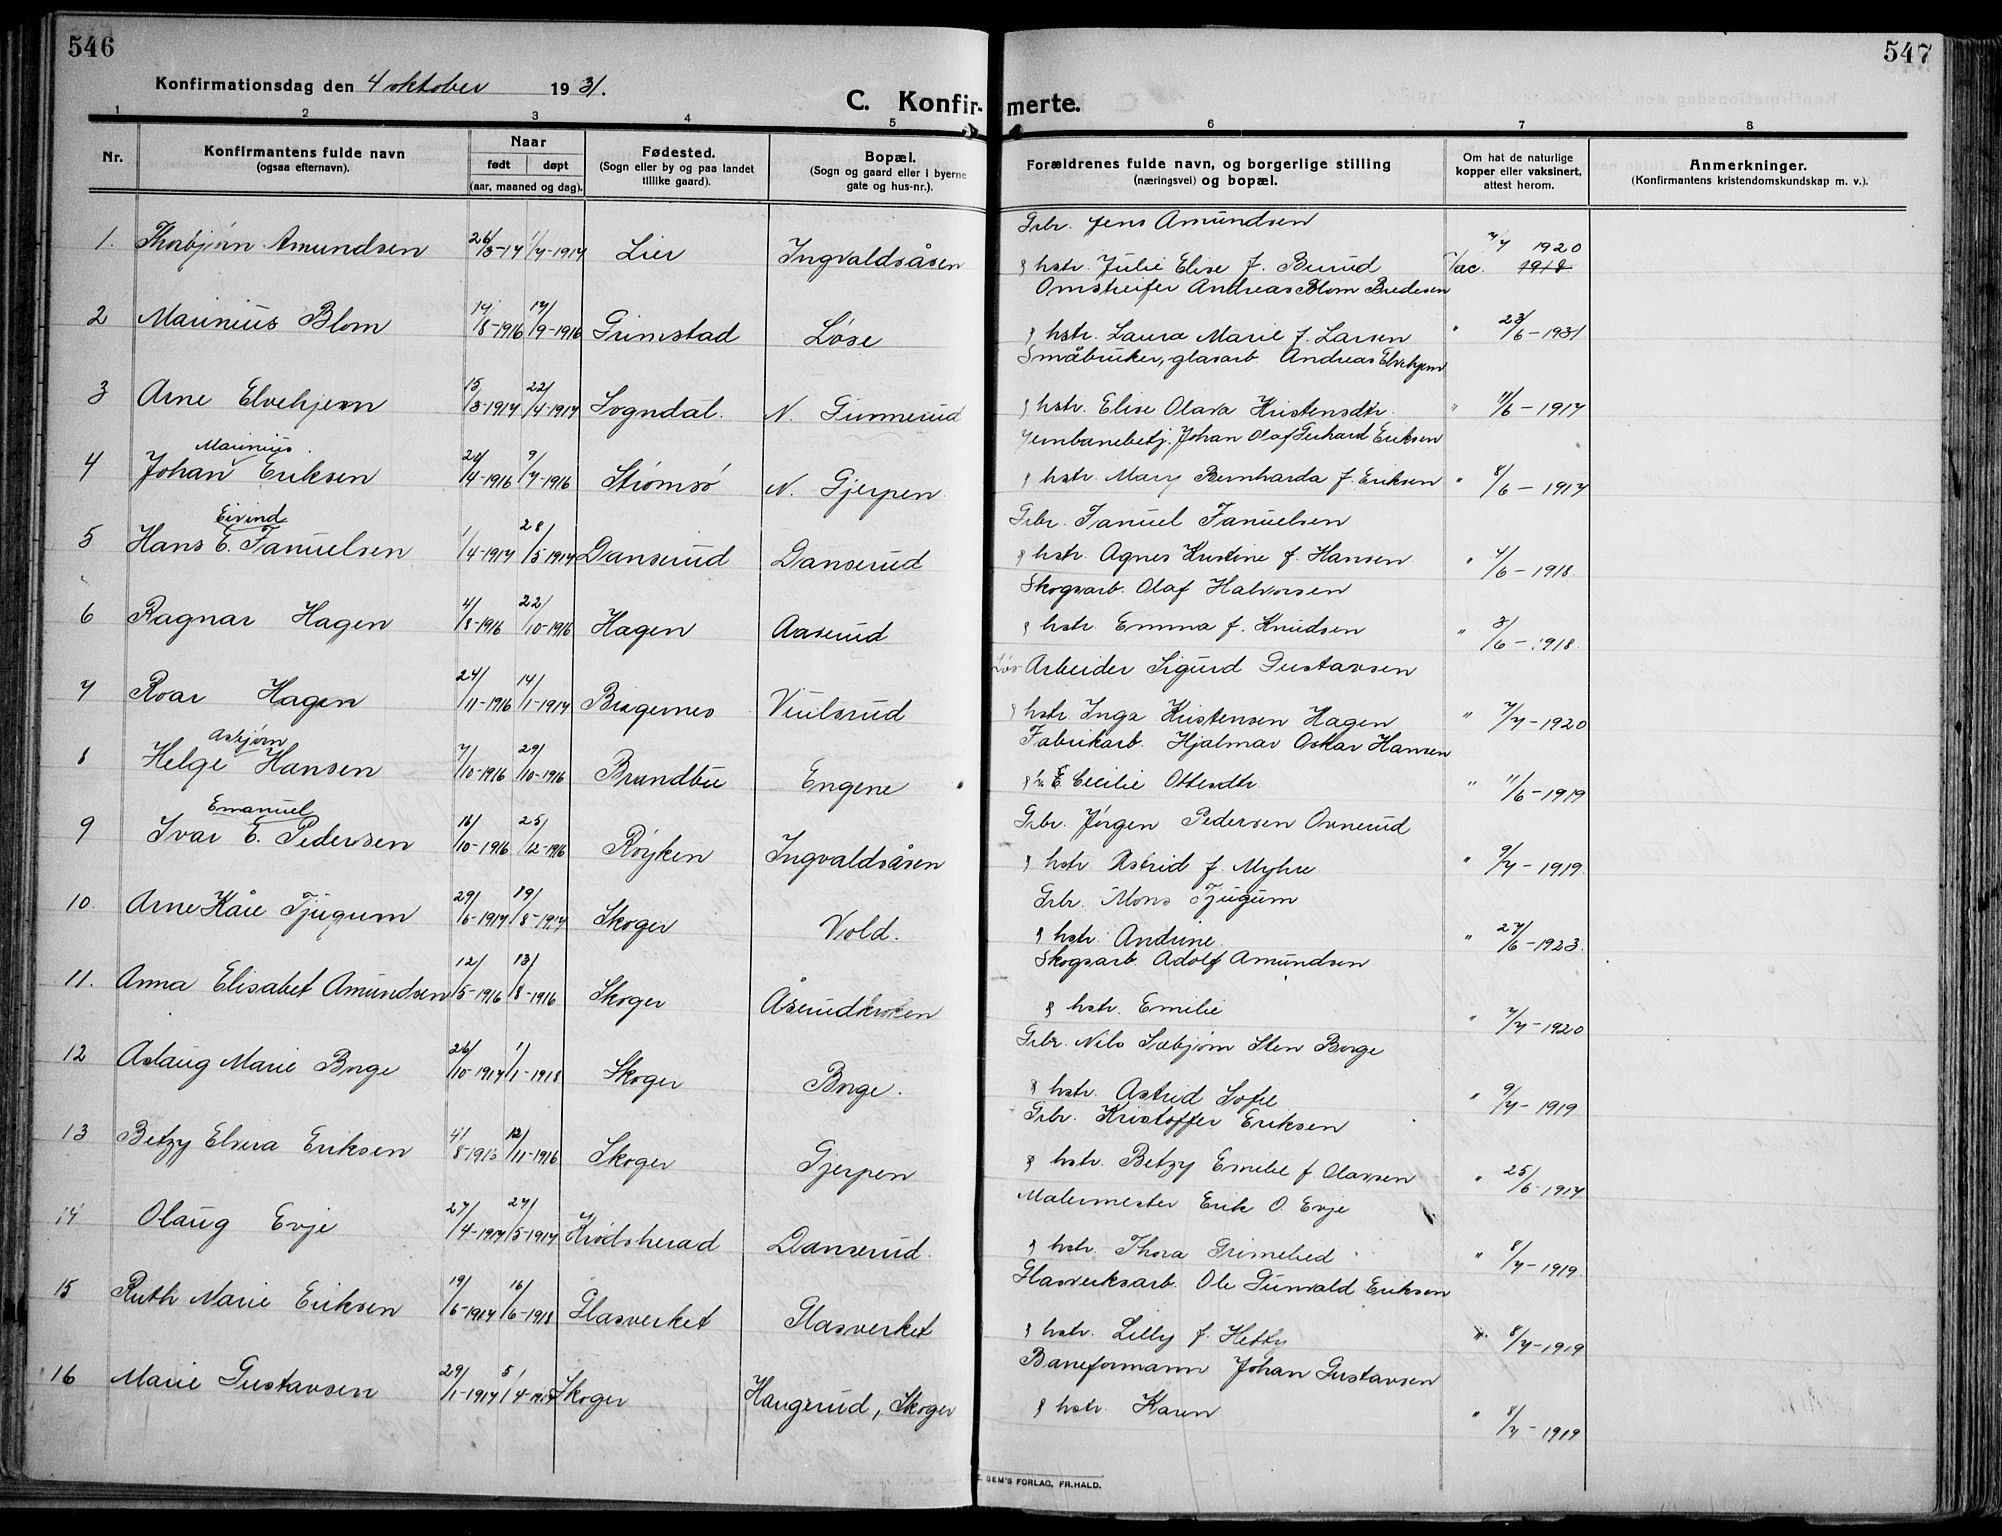 546
547
Konfirmationsdag den 4 oktober 1931.
C. Konfirmerte.
1 2 3 4 5 6 7 8
Nr.
Konfirmantens fulde navn
(ogsaa efternavn).
Naar
født døpt
(aar, maaned og dag).
Fødested.
(Sogn eller by og paa landet
tillike gaard).
Bopæl.
(Sogn og gaard eller i byerne
gate og hus-nr.).
Forældrenes fulde navn, og borgerlige stilling
(næringsvei) og bopæl.
Om hat de naturlige
kopper eller vaksinert,
attest herom.
Anmerkninger.
(Konfirmantens kristendomskundskap m. v.).
Grbr. Jens Amundsen
1. Thorbjørn Amundsen 26/3-17 1/7-1917 Lier Ingvaldsåsen & hstr. Julie Elise f. Burud Vac. 7/7 1920 1918
Omstreifer Andreas Blom Bredesen
2 Marinius Blom 19/8-1916 17/9-1916 Grimstad Løse & hstr. Laura Marie f. Larsen " 23/6-1931
Småbruker, glasarb. Andreas Elvehjem
3 Arne Elvehjem 15/3-1917 22/4-1917 Sogndal. N. Gunnerud & hstr. Elise Olava Kristensdtr. " 11/6-1917
Jernbanebetj. Johan Olaf Gerhard Eriksen
Marinius.
4 Johan Eriksen 20/4-1916 9/7-1916 Strømsø N. Gjerpen & hstr. Mary Bernharda f. Eriksen " 8/6-1917
Grbr. Fanuel Fanuelsen
Eivind
5 Hans E. Fanuelsen 1/4-1917 28/5-1917 Danserud Danserud & hstr. Agnes Kristine f. Hansen " 4/6-1918.
Skogsarb. Olaf Halvorsen
6 Ragnar Hagen 4/8-1916 22/10-1916 Hagen Aaserud & hstr. Emma f. Knudsen " 3/6-1918.
Løs-Arbeider Sigurd Gustavsen
7 Roar Hagen 24/11-1916 14/1-1917 Bragernes Viulsrud & hstr. Inga Kristensen Hagen " 7/7-1920
Fabrikarb. Hjalmar Oskar Hansen
Asbjørn
8 Helge Hansen 7/10-1916 29/10-1916 Brandbu Engene & h. E. Cecilie Ottesdtr. " 11/6-1919
Grbr. Jørgen Pedersen Ovnerud
Emanuel
9 Ivar E. Pedersen 16/10-1916 25/12-1916 Røyken Ingvaldsåsen & hstr. Astrid f. Myhre. " 9/7-1919.
Grbr. Mons Tjugum
10. Arne Kåre Tjugum 29/6-1917 19/8-1917 Skoger Vold. & hstr. Andrine. " 27/6-1923.
Skogsarb. Adolf Amundsen
11. Anna Elisabet Amundsen 12/5-1916 13/8-1916 Skoger Åserudkroken & hstr. Emilie " 7/7-1920
Grbr. Nils Sæbjørn Sten Borge
12 Aslaug Marie Borge 26/10-1917 1/1-1918 Skoger Borge. & hstr. Astrid Sofie " 9/7-1919
Grbr. Kristoffer Eriksen
13 Betzy Elvira Eriksen 4/8-1916 12/11-1916 Skoger Gjerpen & hstr. Betzy Emilie f Olavsen " 25/6-1917
Malermester Erik O. Evje
14 Olaug Evje 27/4-1917 27/5-1917 Krødsherad Danserud. & hstr. Thora Grimelied " 8/7-1919.
Glasverksarb. Ole Gunvald Eriksen
15 Ruth Marie Eriksen 19/6-1917 16/6-1918 Glasverket Glasverket & hstr. Lilly f. Hetty " 8/7-1919
Baneformann Johan Gustavsen
16 Marie Gustavsen 29/1-1917 5/4-1917 Skoger Haugerud, Skoger & hstr. Karen " 8/7-1919
SEM'S FORLAG, FR.HALD.